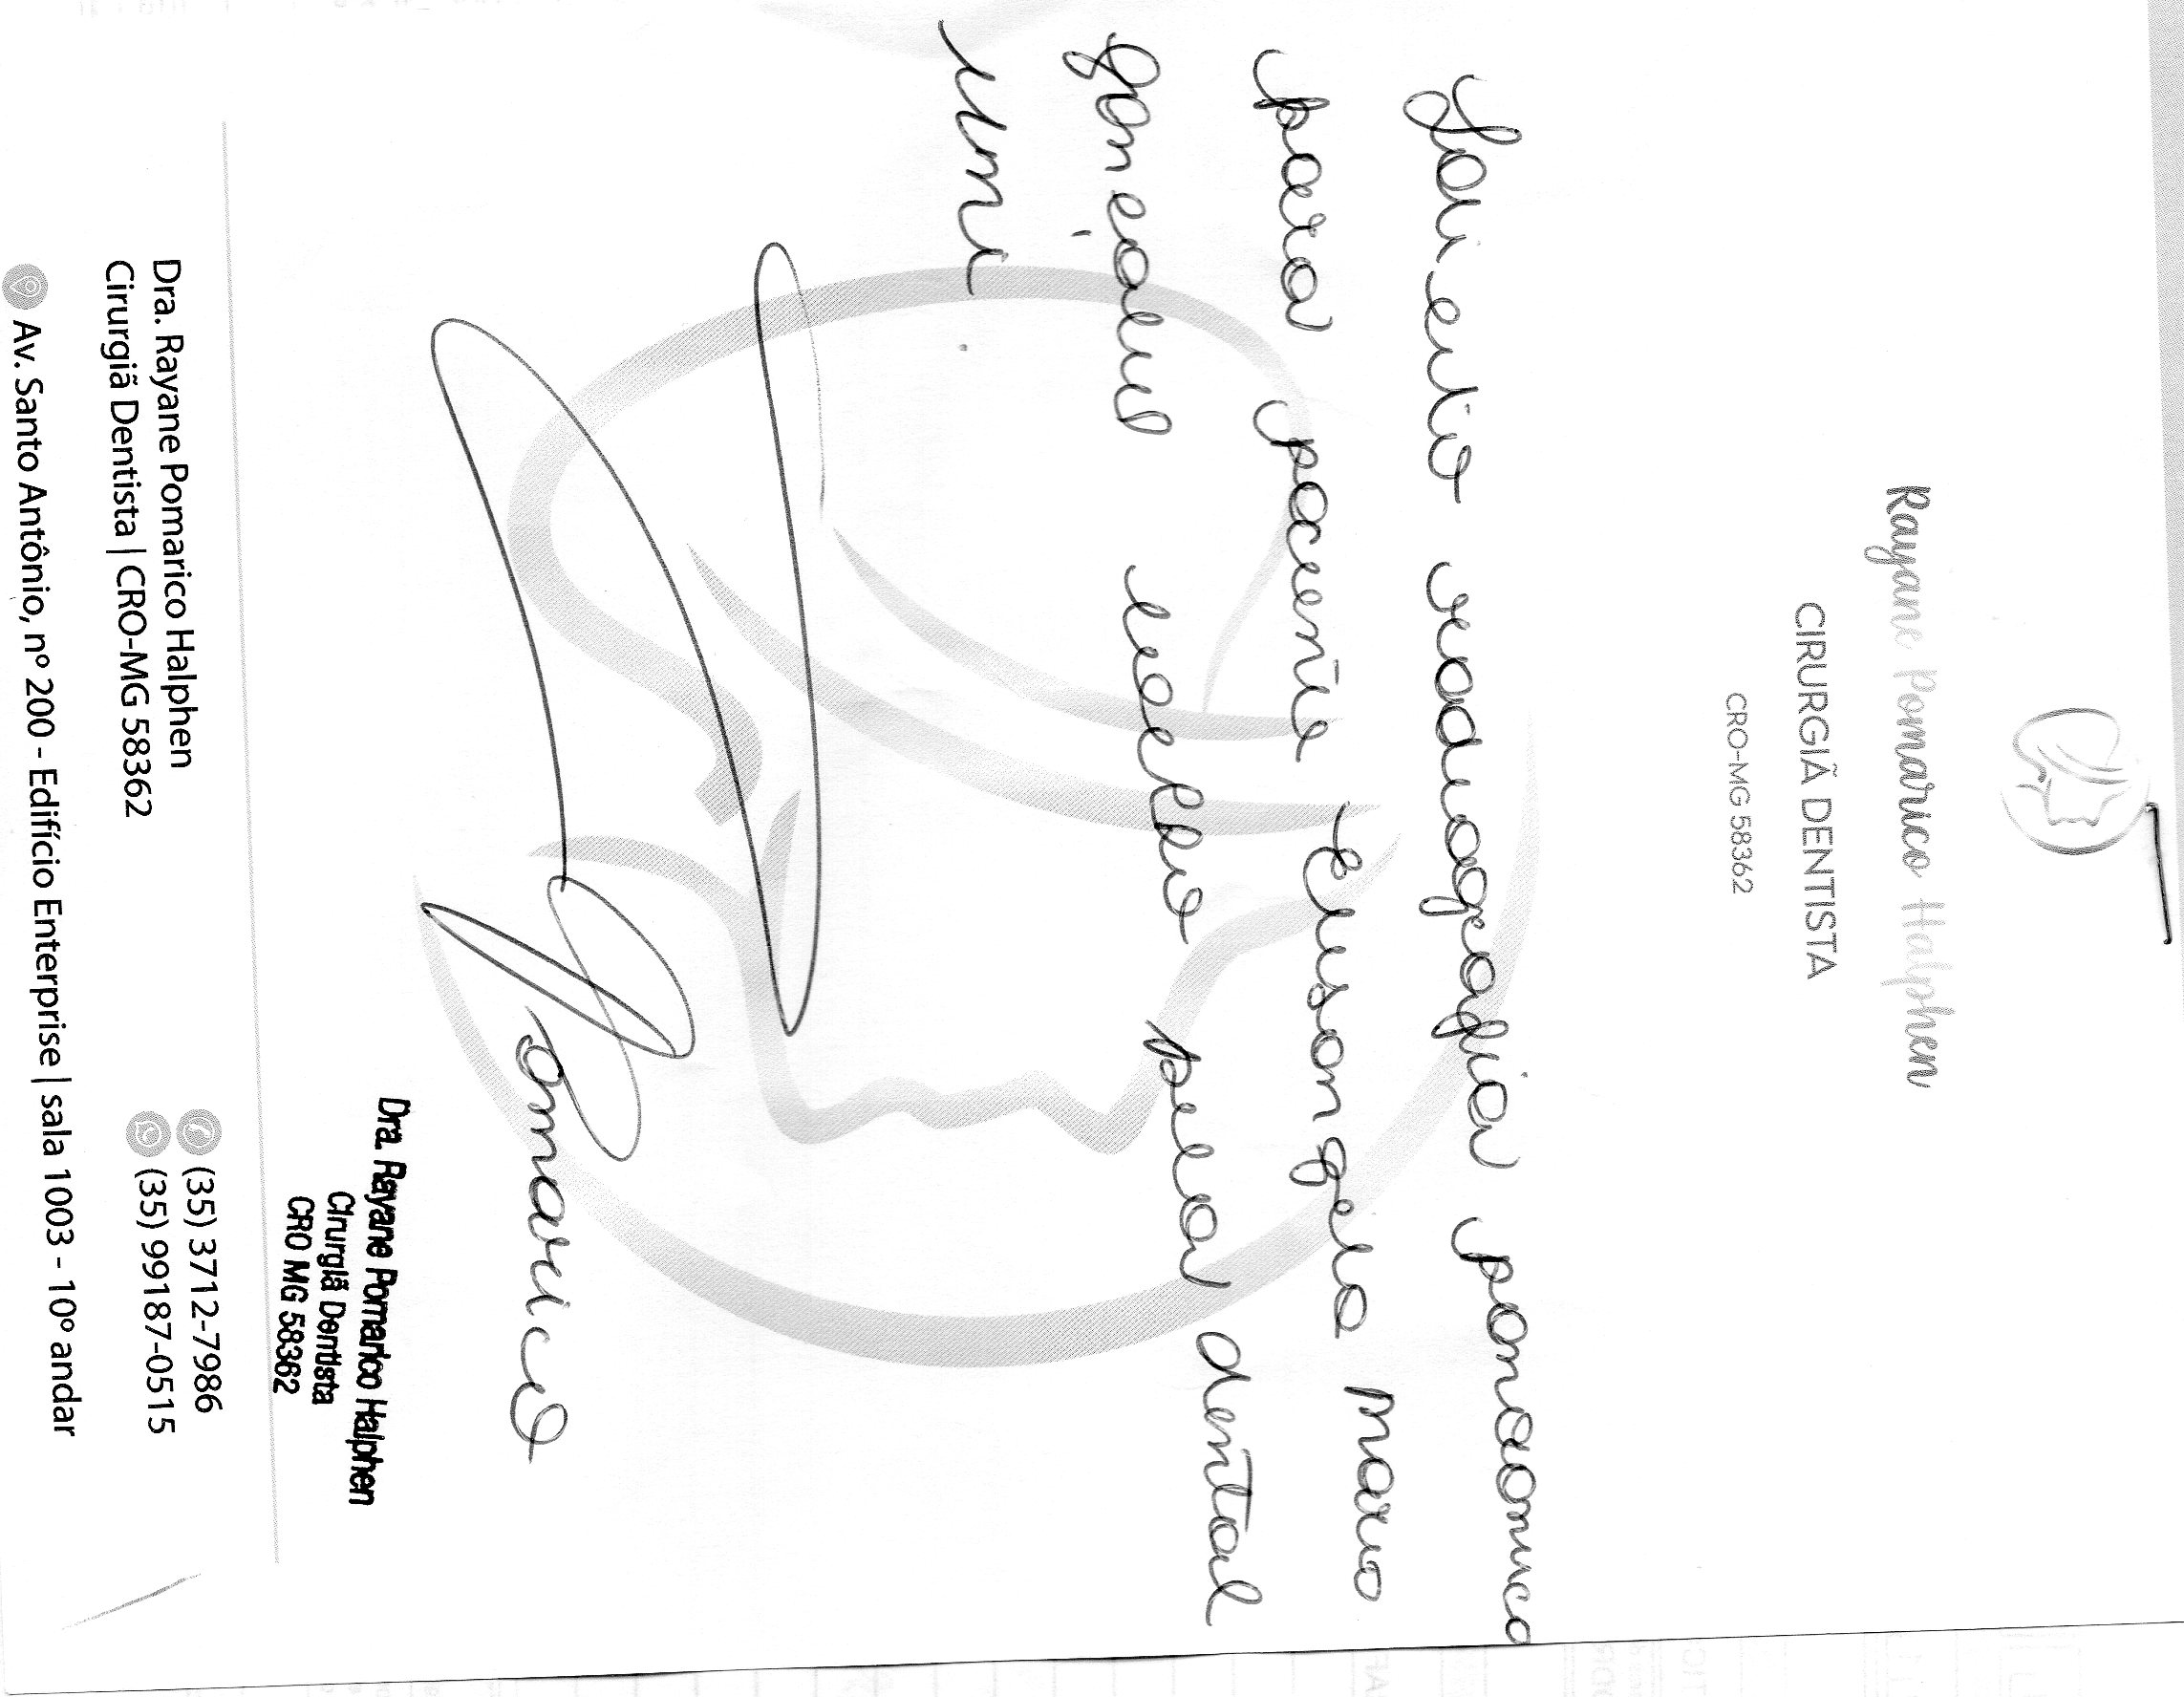 Rayane Pomarico Halphen
CIRURGIÃ DENTISTA
CRO-MG 58362
Solicito radiografia panoramica
para paciente Elisangela Maria
Coelho pela dental
uni.
Pomarico
Dra. Rayane Pomarico Halphen
Cirurgiã Dentista
CRO MG 58362
Dra. Rayane Pomarico Halphen
Cirurgiã Dentista | CRO-MG 58362
(35) 3712-7986
(35) 99187-0515
Av. Santo Antônio, nº 200 - Edifício Enterprise | sala 1003 - 10º andar